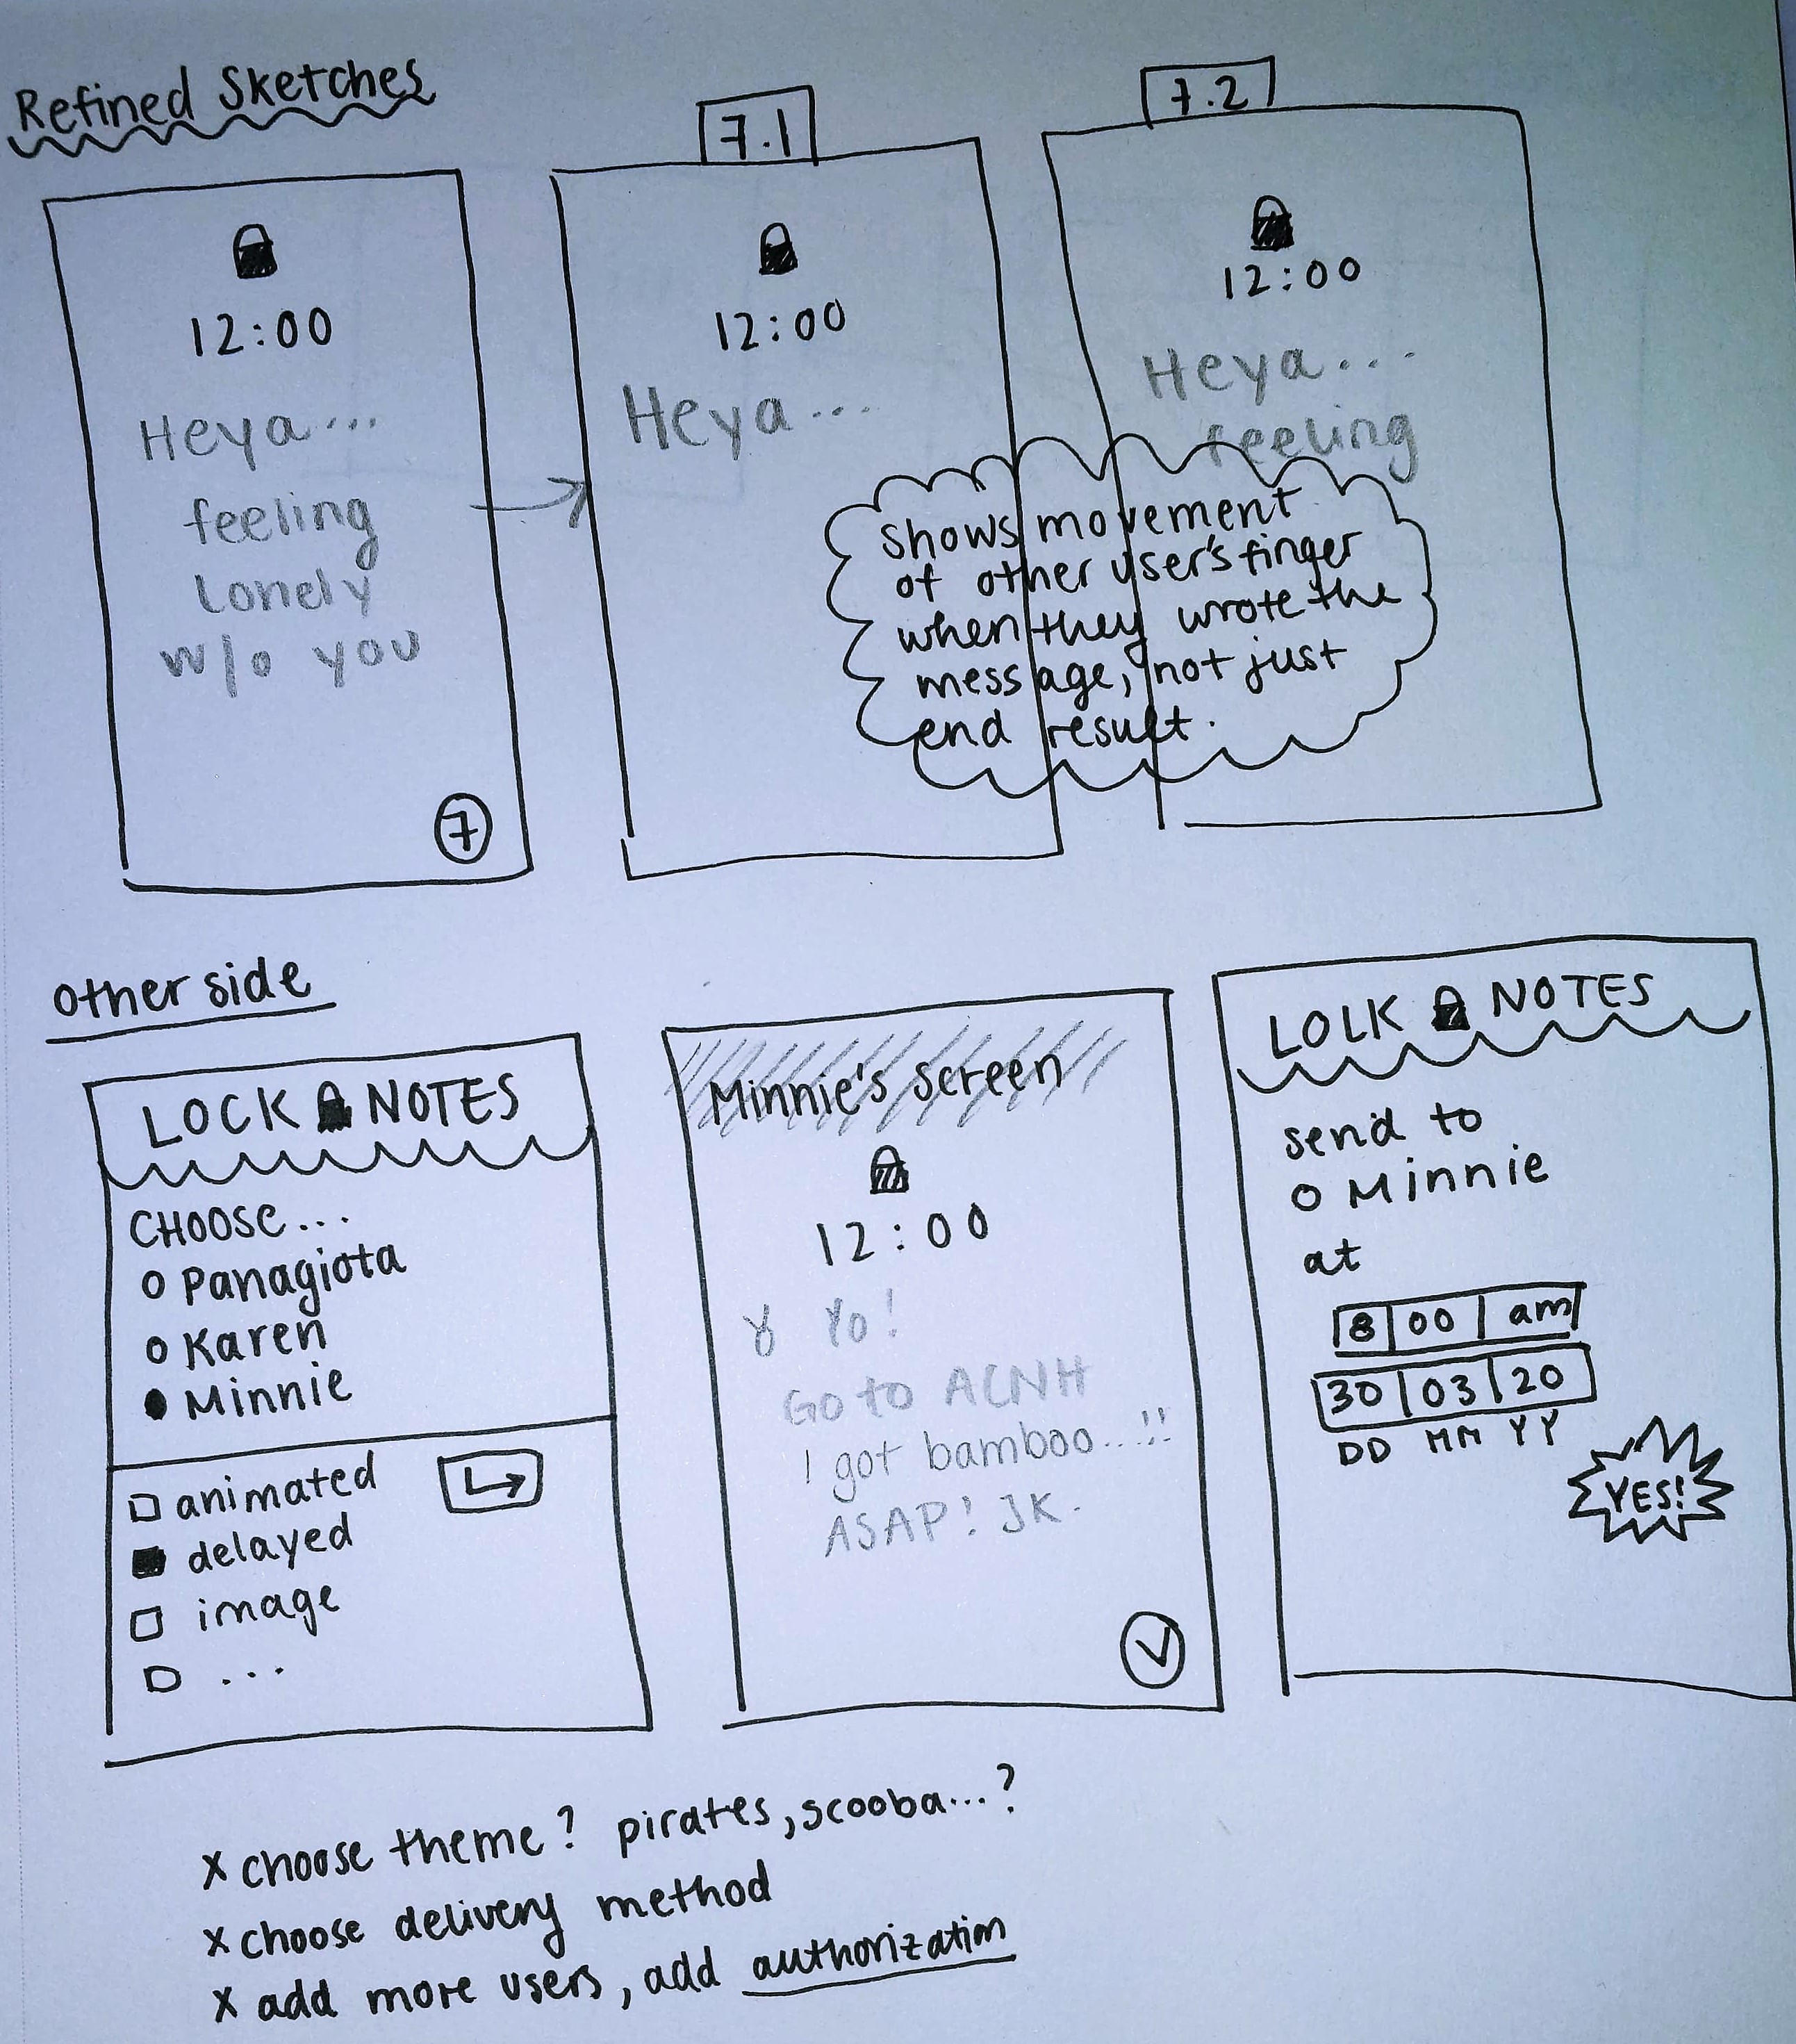 Refined Sketches
12:00
Heya...
feeling
lonely
w/o you
7
7.1
12:00
Heya...
7.2
12:00
Heya...
feeling
shows movement
of other user's finger
when they wrote the
message, not just
end result.
other side
LOCK NOTES
CHOOSE...
Panagiota
Karen
Minnie
animated
delayed
image
...
Minnie's screen
12:00
Yo!
Go to ACNH
I got bamboo...!!
ASAP! JK.
LOLK NOTES
send to
Minnie
at
8 00 am
30 03 20
DD MM YY
YES!
x choose theme? pirates, scooba...?
x choose delivery method
x add more users, add authorization